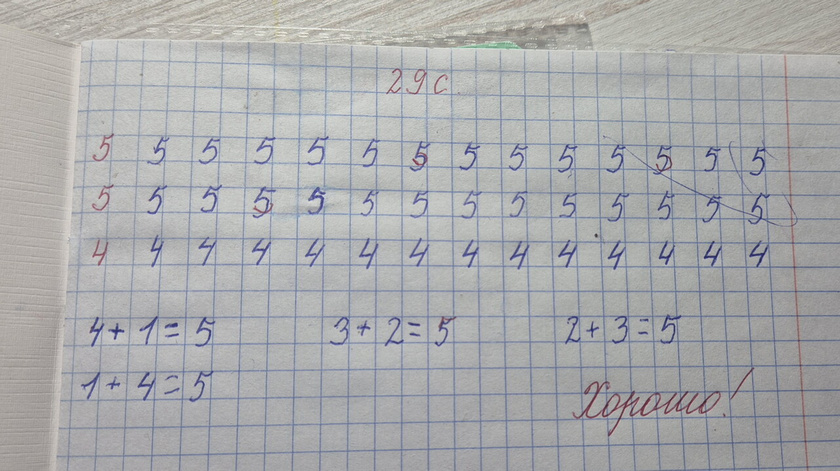 29 с.
5 5 5 5 5 5 5 5 5 5 5 5 5 5
5 5 5 5 5 5 5 5 5 5 5 5 5 5
4 4 4 4 4 4 4 4 4 4 4 4 4 4
4 + 1 = 5 3 + 2 = 5 2 + 3 = 5
1 + 4 = 5
Хорошо!